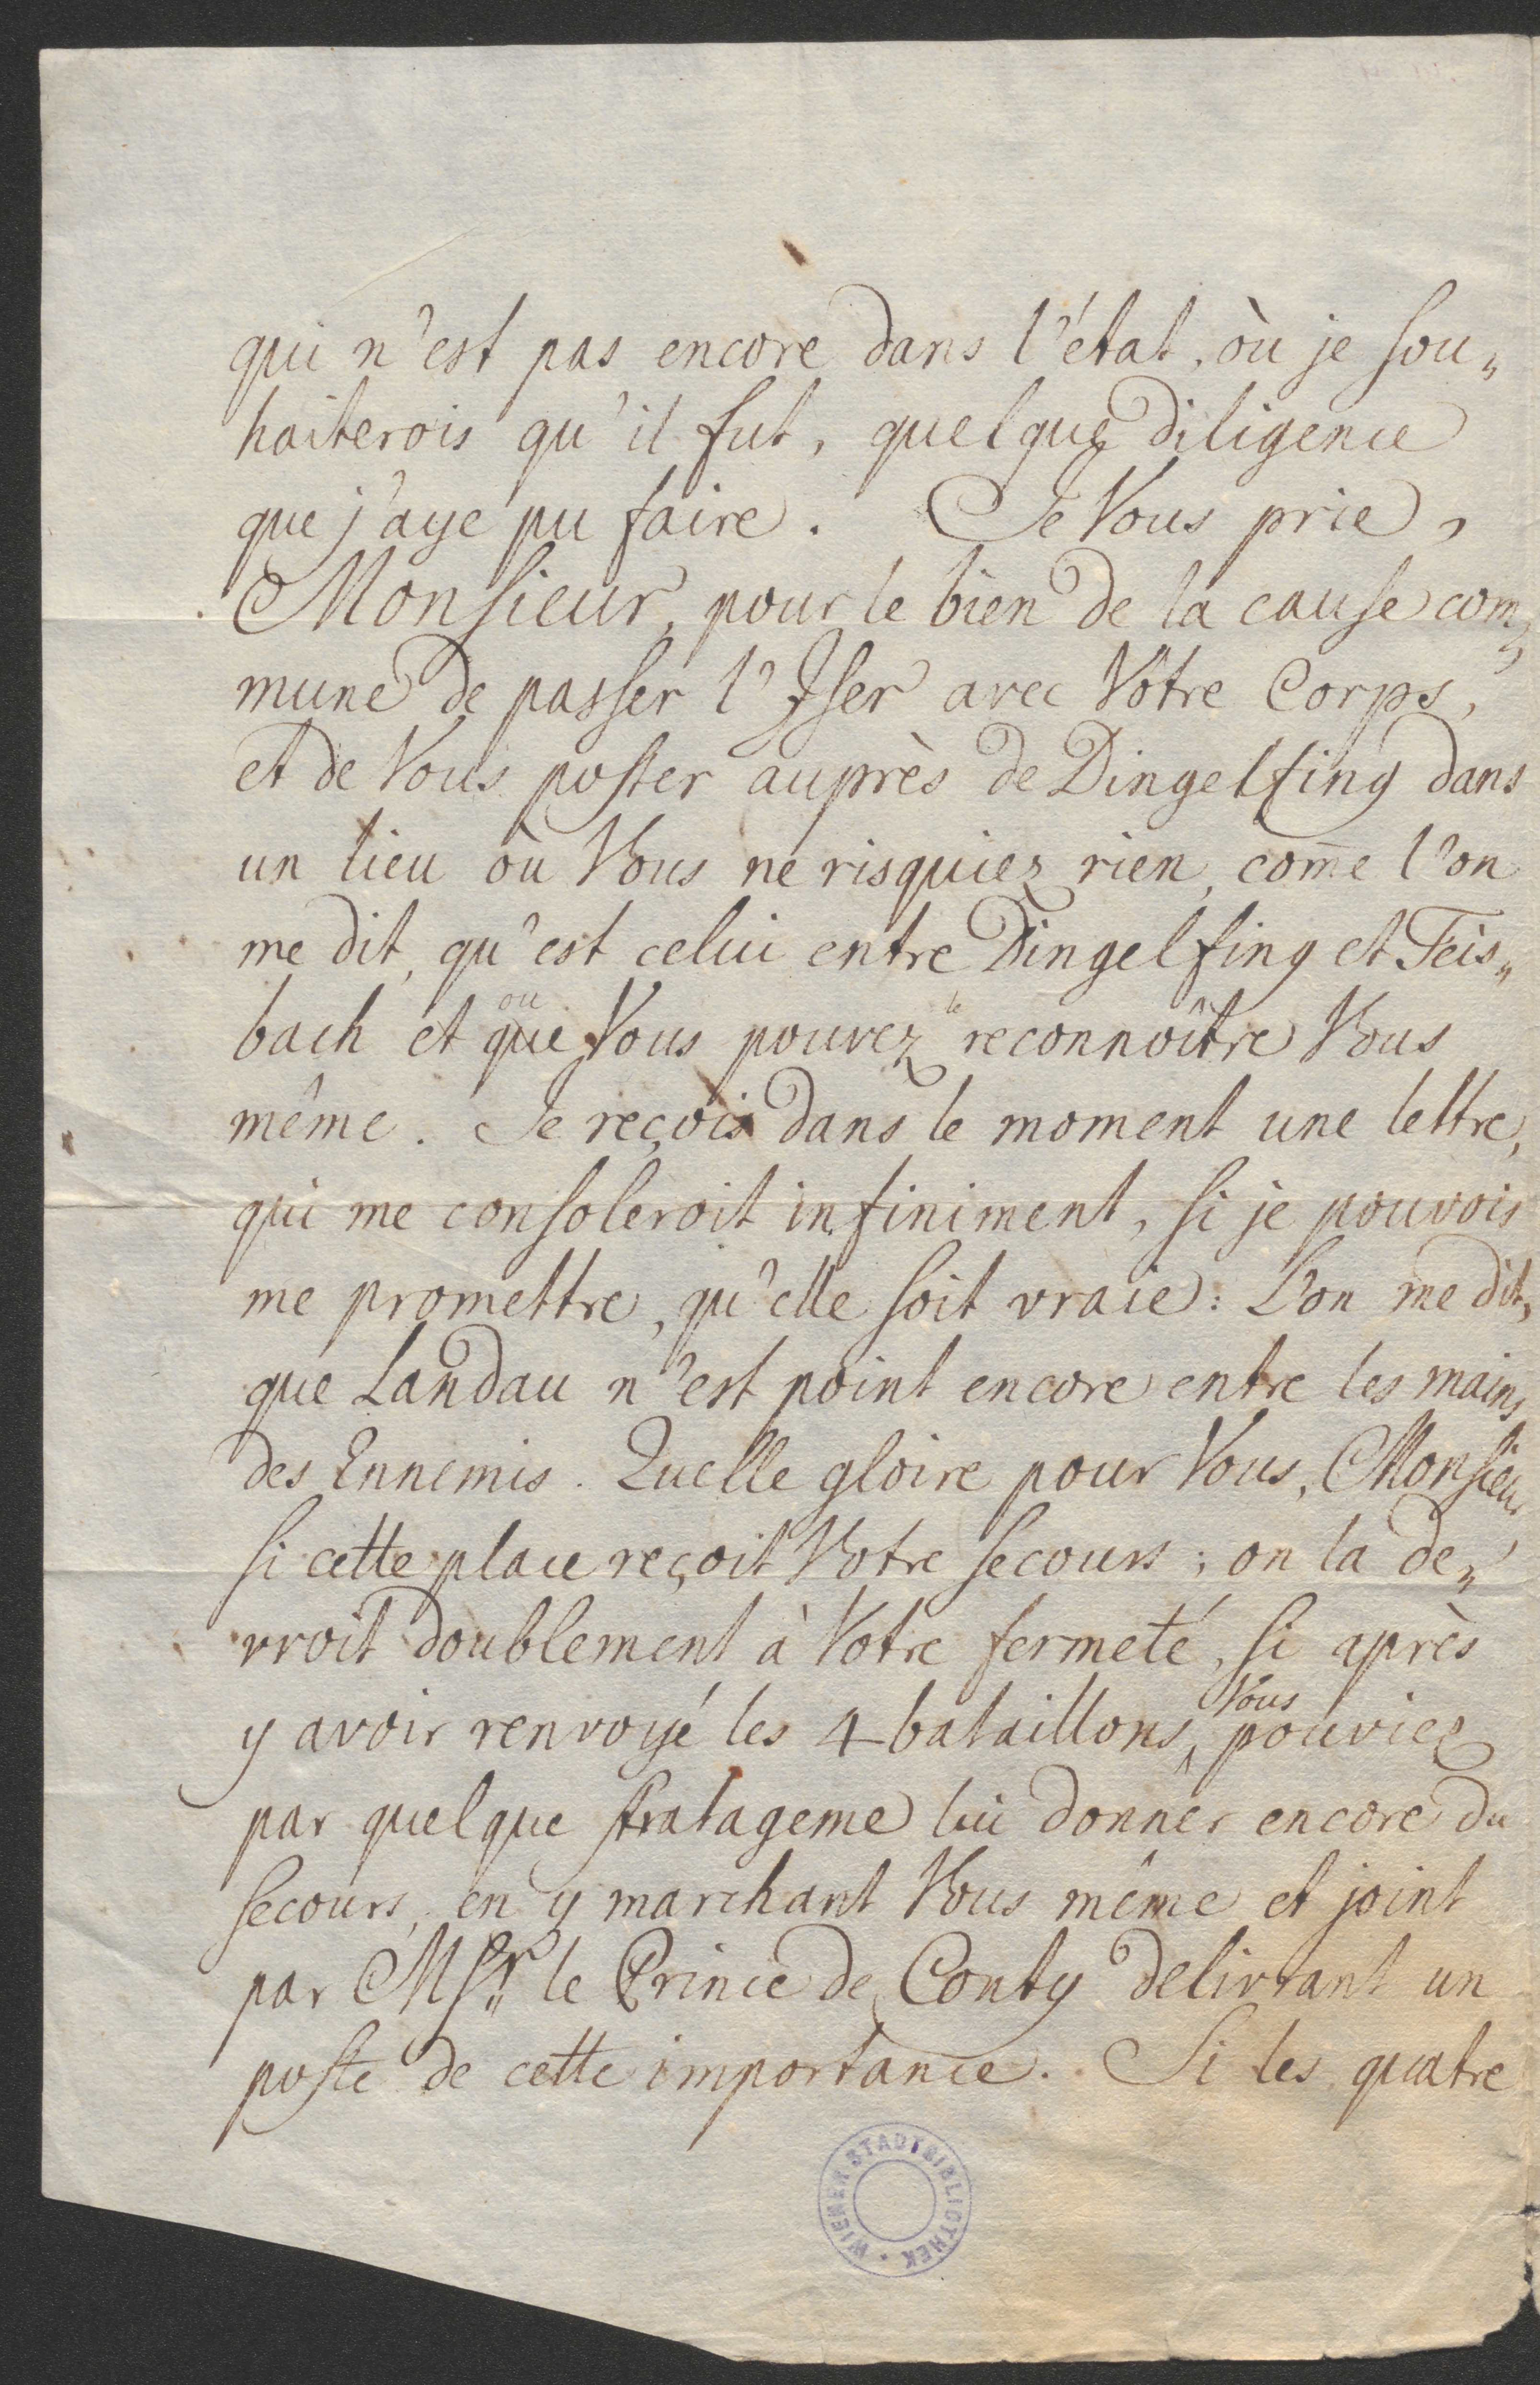 qui n'est pas encore dans l'état, où je sou„
haiterois qu'il fut, quelque diligence
que j'aye pu faire. Je Vous prie,
Monsieur, pour le bien de la cause com„
mune de passer l'Iser avec Vôtre Corps,
et de Vous poster auprès de Dingelfing dans
un lieu où Vous ne risquiez rien, com̄e l'on
me dit, qu'est celui entre Dingelfing et Teis„
ou le
bach et que Vous pouvez reconnoître Vous
même. Je reçois dans le moment une lettre,
qui me consoleroit infiniment, si je pouvois
me promettre, qu'elle soit vraie: L'on me dit,
que Landau n'est point encore entre les mains
des Ennemis. Quelle gloire pour Vous, Monsieur
si cette place reçoit Votre secours; on la de„
vroit doublement à Votre fermeté, si après
Vous
y avoir renvoyé les 4 bataillons, pouviez
par quelque stratageme lui donner encore du
secours, en y marchant Vous même et joint
par Msr. le Prince de Conty delivrant un
poste de cette importance. Si les quatre
WIENER STADTBIBLIOTHEK